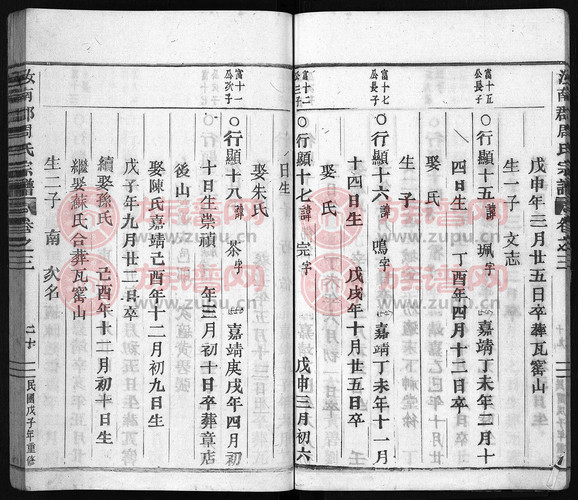 汝南郡周氏宗譜 卷之三
戊申年三月廿五日卒葬瓦窰山
生一子 文志
富十五公長子
○行顯十五諱 珮字 嘉靖丁未年三月十
四日生 丁酉年四月十二日卒
娶 氏
生子
富十六公長子
○行顯十六諱 鳴字 嘉靖丁未年十一月
十四日生 戊戌年十月廿五日卒
娶 氏
富十二公三子
○行顯十七諱 完字 戊申三月初六
日生
娶朱氏
富十一公次子
○行顯十八諱 茶字 嘉靖庚戌年四月初
十日生崇禎 年三月初十日卒葬章店
後山
娶陳氏嘉靖己酉年十二月初九日生
戊子年九月廿二日卒
續娶孫氏 己酉年十二月初十日生
繼娶蘇氏合葬瓦窰山
生二子 南 次名
汝南郡周氏宗譜 卷之三
二十 民國戊子年重修
族譜网
www.zupu.cn
族譜网
www.zupu.cn